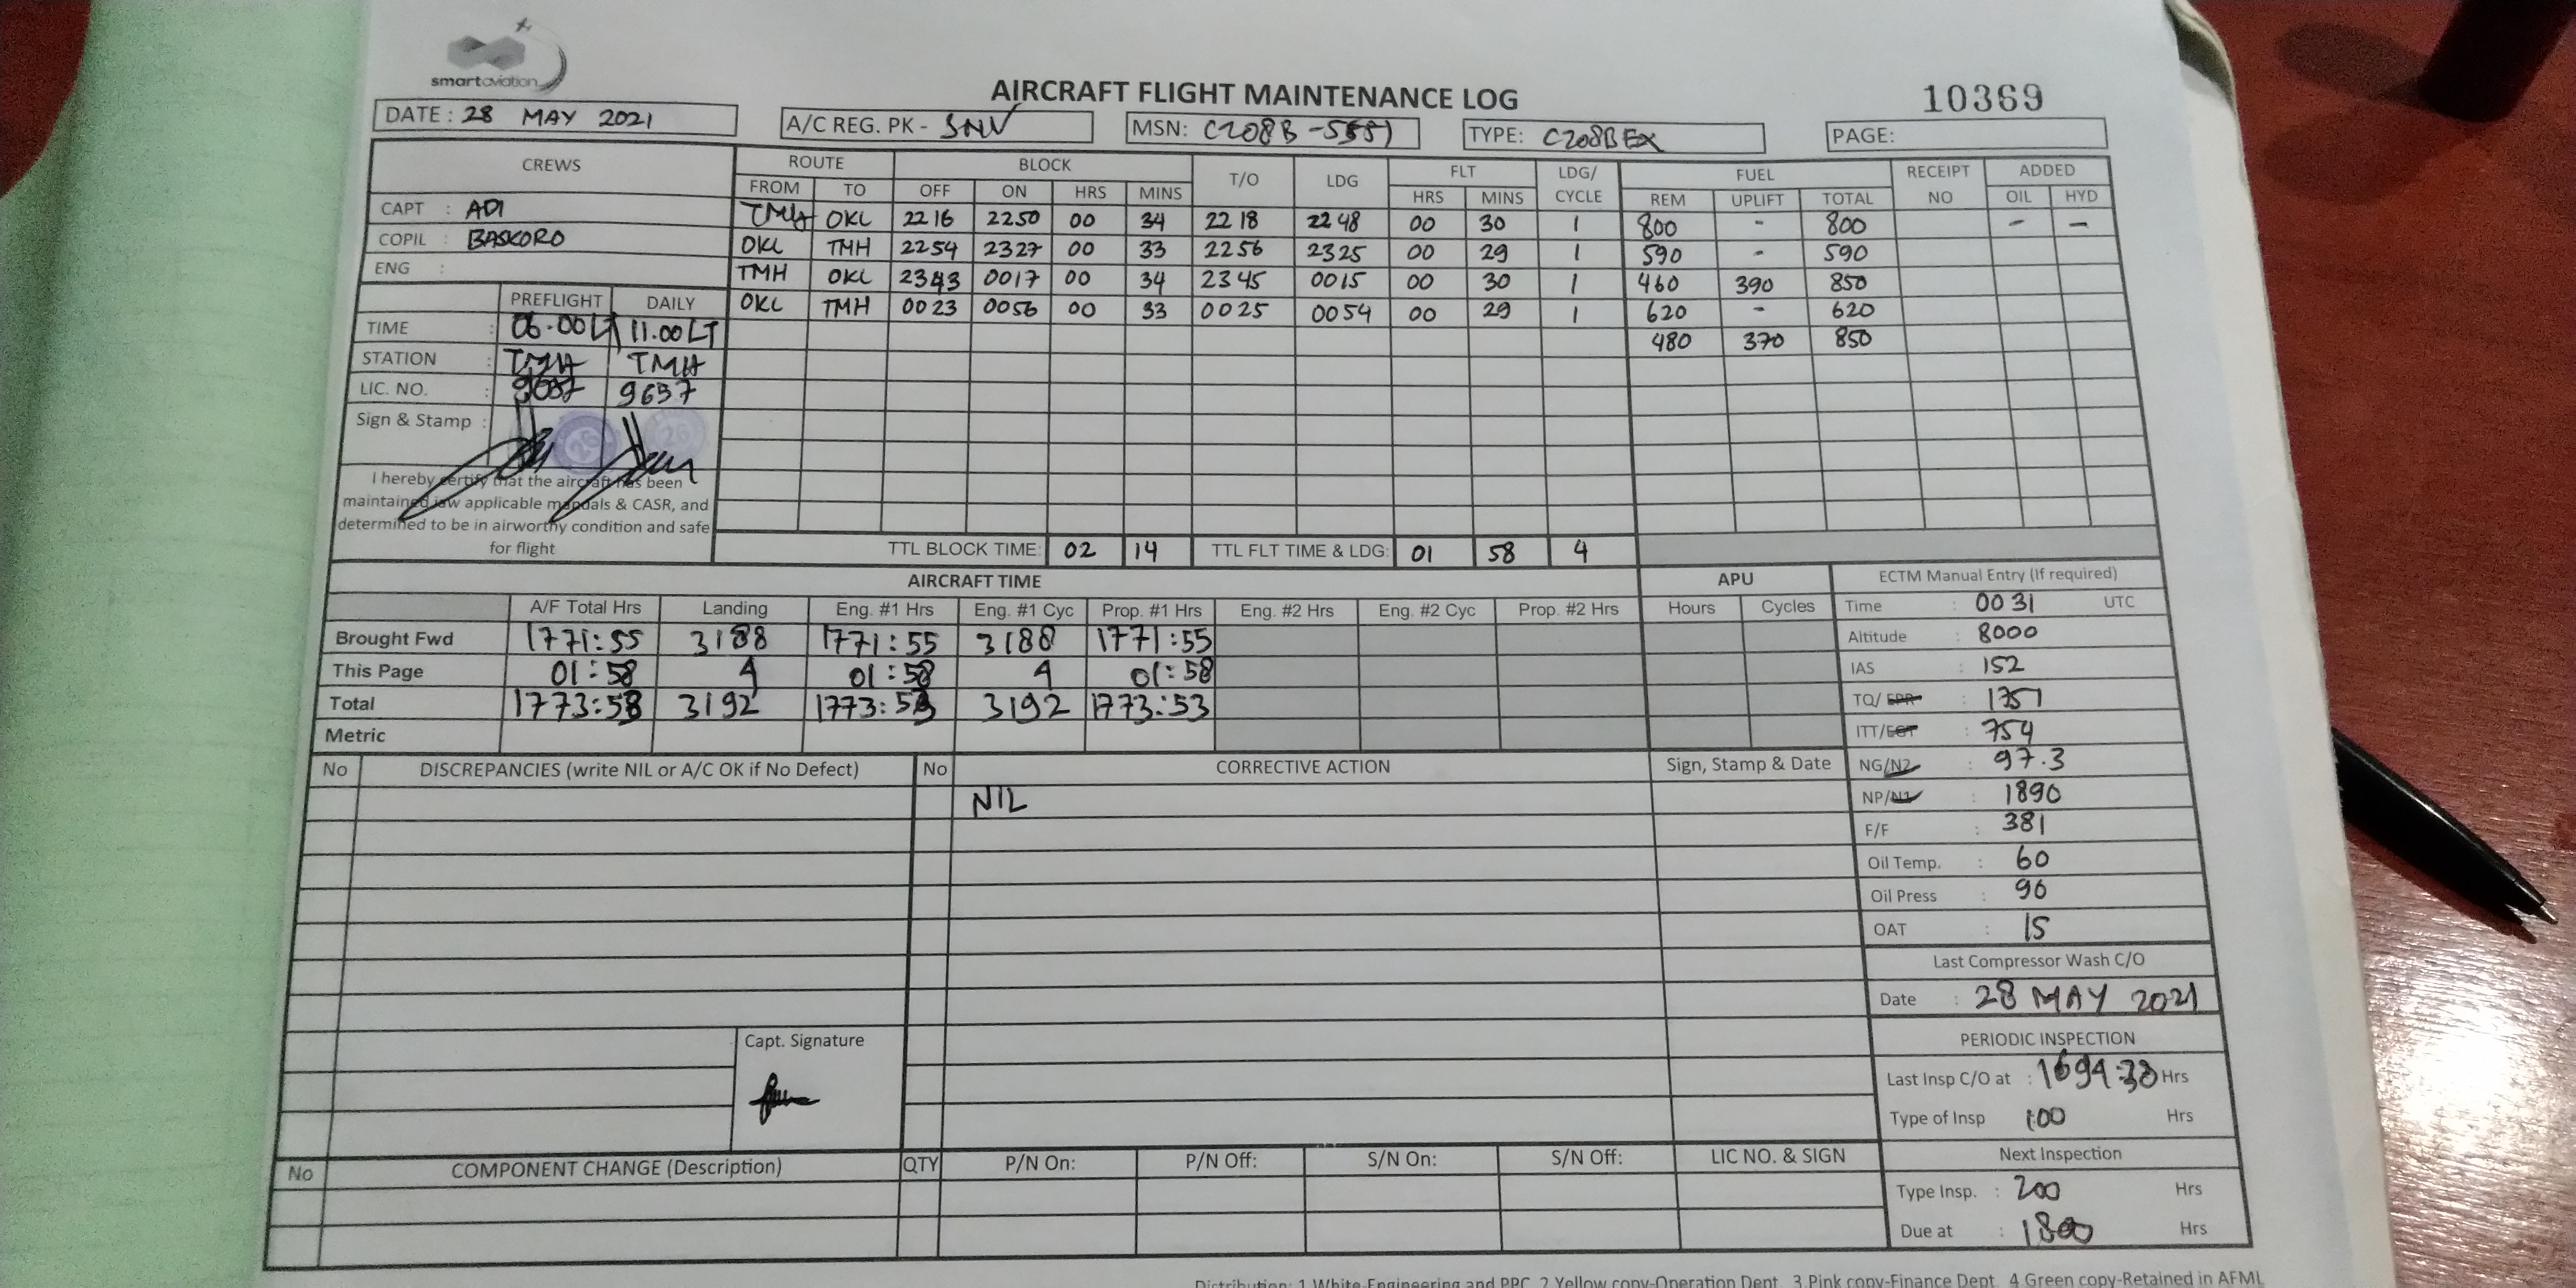 smartaviation
AIRCRAFT FLIGHT MAINTENANCE LOG
10369
DATE : 28 MAY 2021
A/C REG. PK - SNV
MSN: C208B -5551
TYPE: C208B EX
PAGE:
CREWS ROUTE BLOCK T/O LDG FLT LDG/ CYCLE FUEL RECEIPT NO ADDED
FROM TO OFF ON HRS MINS HRS MINS REM UPLIFT TOTAL OIL HYD
CAPT : ADI TMH OKL 2216 2250 00 34 2218 2248 00 30 1 800 - 800 - -
COPIL : BASKORO OKL TMH 2254 2327 00 33 2256 2325 00 29 1 590 - 590
ENG : TMH OKL 2343 0017 00 34 2345 0015 00 30 1 460 390 850
PREFLIGHT DAILY OKL TMH 0023 0056 00 33 0025 0054 00 29 1 620 - 620
TIME : 06.00 LT 11.00 LT 480 370 850
STATION : TMH TMH
LIC. NO. : 9657
Sign & Stamp :
I hereby certify that the aircraft has been
maintained iaw applicable manuals & CASR, and
determined to be in airworthy condition and safe
for flight
TTL BLOCK TIME: 02 14 TTL FLT TIME & LDG: 01 58 4
AIRCRAFT TIME APU
A/F Total Hrs Landing Eng. #1 Hrs Eng. #1 Cyc Prop. #1 Hrs Eng. #2 Hrs Eng. #2 Cyc Prop. #2 Hrs Hours Cycles
Brought Fwd 1771:55 3188 1771:55 3188 1771:55
This Page 01:58 4 01:58 4 01:58
Total 1773:53 3192 1773:53 3192 1773:53
Metric
ECTM Manual Entry (If required)
Time : 0031 UTC
Altitude : 8000
IAS : 152
TQ/EPR : 1351
ITT/EGT : 754
NG/N2 : 97.3
NP/N1 : 1890
F/F : 381
Oil Temp. : 60
Oil Press : 90
OAT : 15
Last Compressor Wash C/O
Date : 28 MAY 2021
PERIODIC INSPECTION
Last Insp C/O at : 1694:38 Hrs
Type of Insp 100 Hrs
Next Inspection
Type Insp. : 200 Hrs
Due at : 1800 Hrs
No DISCREPANCIES (write NIL or A/C OK if No Defect) No CORRECTIVE ACTION Sign, Stamp & Date
NIL
Capt. Signature
No COMPONENT CHANGE (Description) QTY P/N On: P/N Off: S/N On: S/N Off: LIC NO. & SIGN
Distribution: 1.White-Engineering and PPC 2.Yellow copy-Operation Dept 3.Pink copy-Finance Dept 4.Green copy-Retained in AFML